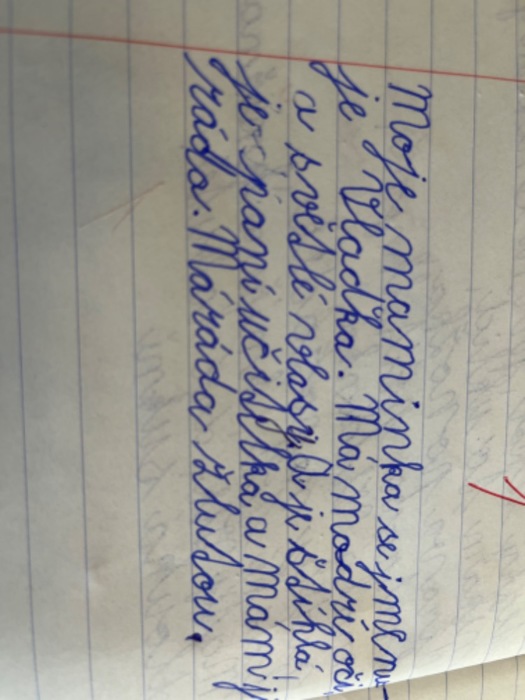 Moje maminka se jmenu-
je Vlaďka. Má modrí oči,
a světlé vlasy. A je štíhlá,
je paní učitelka a mám ji
ráda. Má ráda žlutou.
1